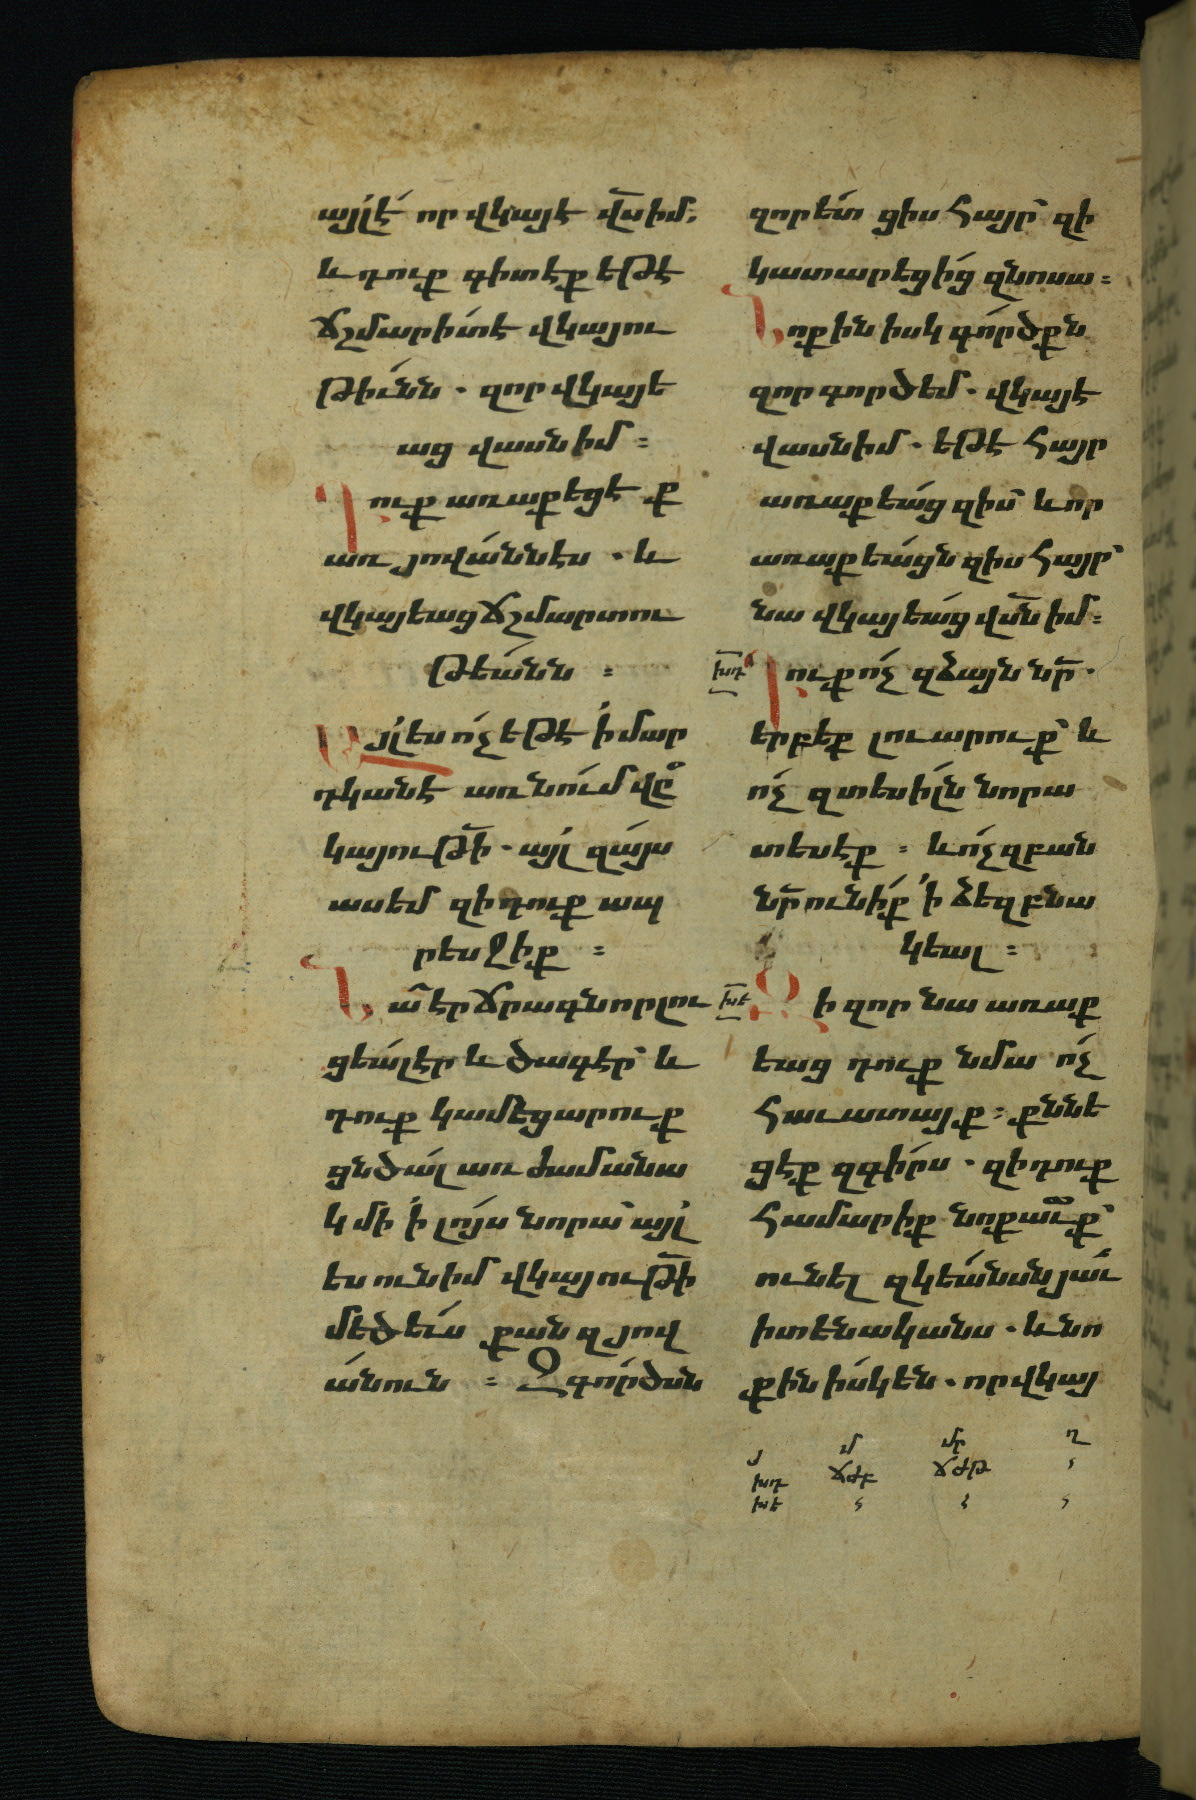 այլ է՛ որ վկայէ վս̃ իմ.
և դուք գիտէք եթէ
ճշմարիտ է վկայու
թիւնն · զոր վկայե
աց վասն իմ :
Դուք առաքեցէք
առ յովաննէս · և
վկայեաց ճշմարտու
թեանն :
Այլ ես ո՛չ եթէ ի՛ մար
դկանէ առնում վը̃
կայութի̃ · այլ զայս
ասեմ զի դուք ապ
րեսջիք :
Նա̃ էր ճրագն որ լու
ցեալ էր և ծագէր՝ և
դուք կամեցարուք
ցնծալ առ ժամանա
կ մի ի՛ լոյս նորա՝ այլ
ես ունիմ վկայութի̃
մեծ ևս քան զյով
աննու : Զգործսն
զոր ետ ցիս հայր՝ զի
կատարեցից զնոսա :
Նոքին իսկ գործքն
զոր գործեմ · վկայէ
վասն իմ · եթէ հայր
առաքեաց զիս՝ և որ
առաքեացն զիս հայր՝
նա վկայեաց վս̃ն իմ :
խդ Դուք ո՛չ զձայն նր̃ ·
երբեք լուարուք՝ և
ո՛չ զտեսիլն նորա
տեսէք : և ո՛չ զբան
նր̃ ունիք ՛ի ձեզ բնա
կեալ :
խե Զի զոր նա առաք
եաց դուք նմա ո՛չ
հաւատայք : քննե
ցէք զգիրս · զի դուք
համարիք նոքաւ̃ք՝
ունել զկեանսն յաւ
իտենականս · և նո
քին իսկ են · որ վկայ
յ մ մր ղ
խդ ճժբ ճժթ
խե